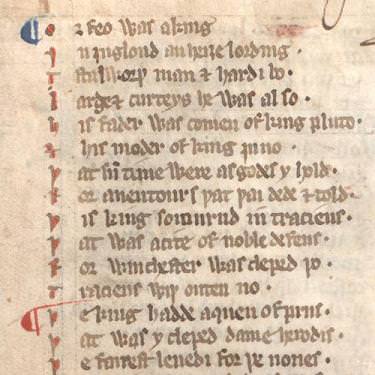 Orfeo was a king
In Inglond an heiȝe lording
A stalworþ man & hardi bo
Large & curteys he was al so
His fader was comen of king pluto
& his moder of king iuno
Þat sum time were as godes y hold
For auentours þat þai dede & told
Þis king soiournd in traciens
Þat was a cite of noble defens
For winchester was cleped þo
Traciens wiþ outen no
Þe king hadde a quen of priis
Þat was y cleped dame herodis
Þe fairest leuedi for þe nones